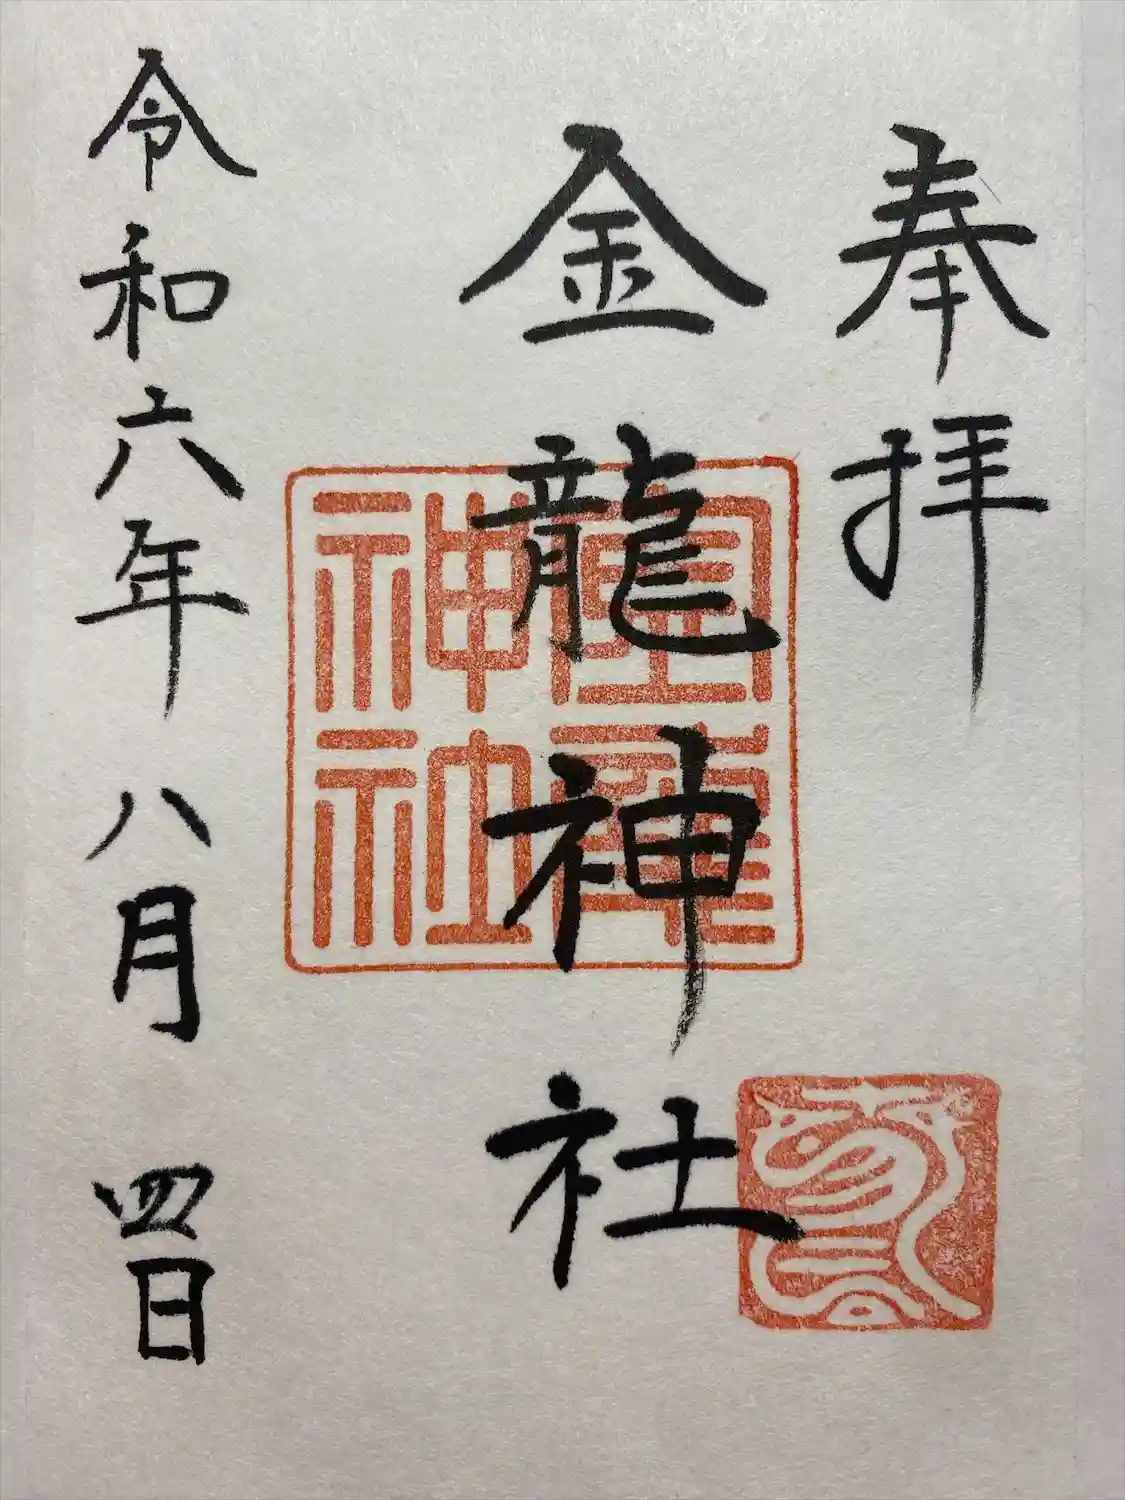 奉拝
金龍神社
金龍神社
令和六年八月四日